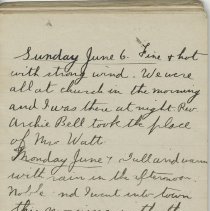 Sunday June 6. Fine & hot
with strong wind. We were
all at church in the morning
and I was there at night. Rev.
Archie Bell took the place
of Mr Watt.
Monday June 7 Dull and warm
with rain in the afternoon.
and I went into town
this